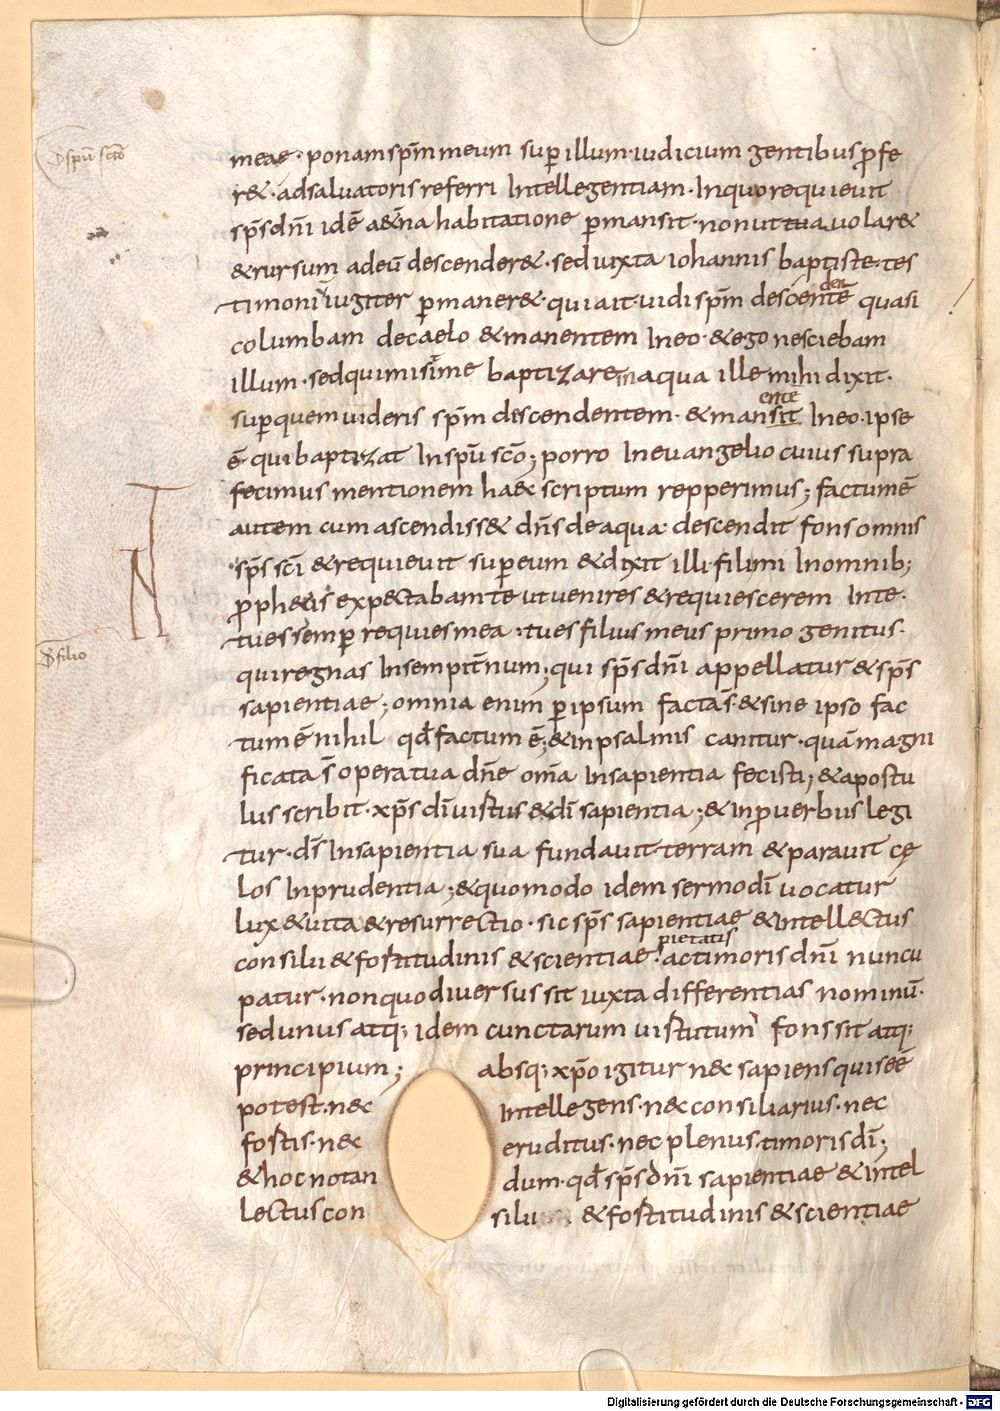 D sp̄u sc̄to
meae · ponam sp̄m meum sup illum · iudicium gentibus ꝓfe
r& · ad saluatoris referri Intellegentiam · In quo requieuit
sp̄s dn̄i idē a&̄na habitatione ꝑmansit · non ut tua uolar&
& rursum ad eū descender& · sed iuxta iohannis baptiste tes
timoniū iugiter ꝑmaner& · qui ait · uidi sp̄m descenden̄te quasi
columbam de caelo & manentem In eo · & ego nesciebam
illum · sed qui misit me baptizare in aqua ille mihi dixit ·
suꝑ quem uideris sp̄m descendentem · & mansit entē In eo · ipse
ē qui baptizat In sp̄u sc̄o ; porro In euangelio cuius supra
fecimus mentionem haec scriptum repperimus ; factum ē
autem cum ascendiss& dn̄s de aqua · descendit fons omnis
sp̄s sc̄i & requieuit suꝑ eum & dixit illi · fili mi In omnib;
ꝓph&is exp&ctabam te ut uenires & requiescerem In te ·
tu es semꝑ requies mea · tu es filius meus primogenitus ·
D filio
qui regnas In sempit̄num ; qui sp̄s dn̄i appellatur & sp̄s
sapientiae ; omnia enim ꝑ ipsum facta s̄ · & sine ipso fac
tum ē nihil qd̄ factum ē ; & in psalmis canitur · quā magni
ficata s̄ opera tua dn̄e om̄a In sapientia fecisti ; & apostu
lus scribit · xp̄s dī uistus & dī sapientia ; & In ꝓuerbiis legi
tur · ds̄ In sapientia sua fundauit terram & parauit cę
los In prudentia ; & quomodo idem sermo dī uocatur
lux & uita & resurrectio · sic sp̄s sapientiae & intellectus
consilii & fostitudinis & scientiae · pietatis ac timoris dn̄i nuncu
patur · non quo diuersus sit iuxta differentias nominū ·
sed unus atq; idem cunctarum uistutum fons sit atq;
principium ; absq; xp̄o igitur nec sapiens quis eē
potest · nec Intellegens · nec consiliarius · nec
fostis · nec eruditus · nec plenus timoris dī ;
& hoc notan dum · qd̄ sp̄s dn̄i sapientiae & intel
lectus con silii & fostitudinis & scientiae
Digitalisierung gefördert durch die Deutsche Forschungsgemeinschaft - DFG